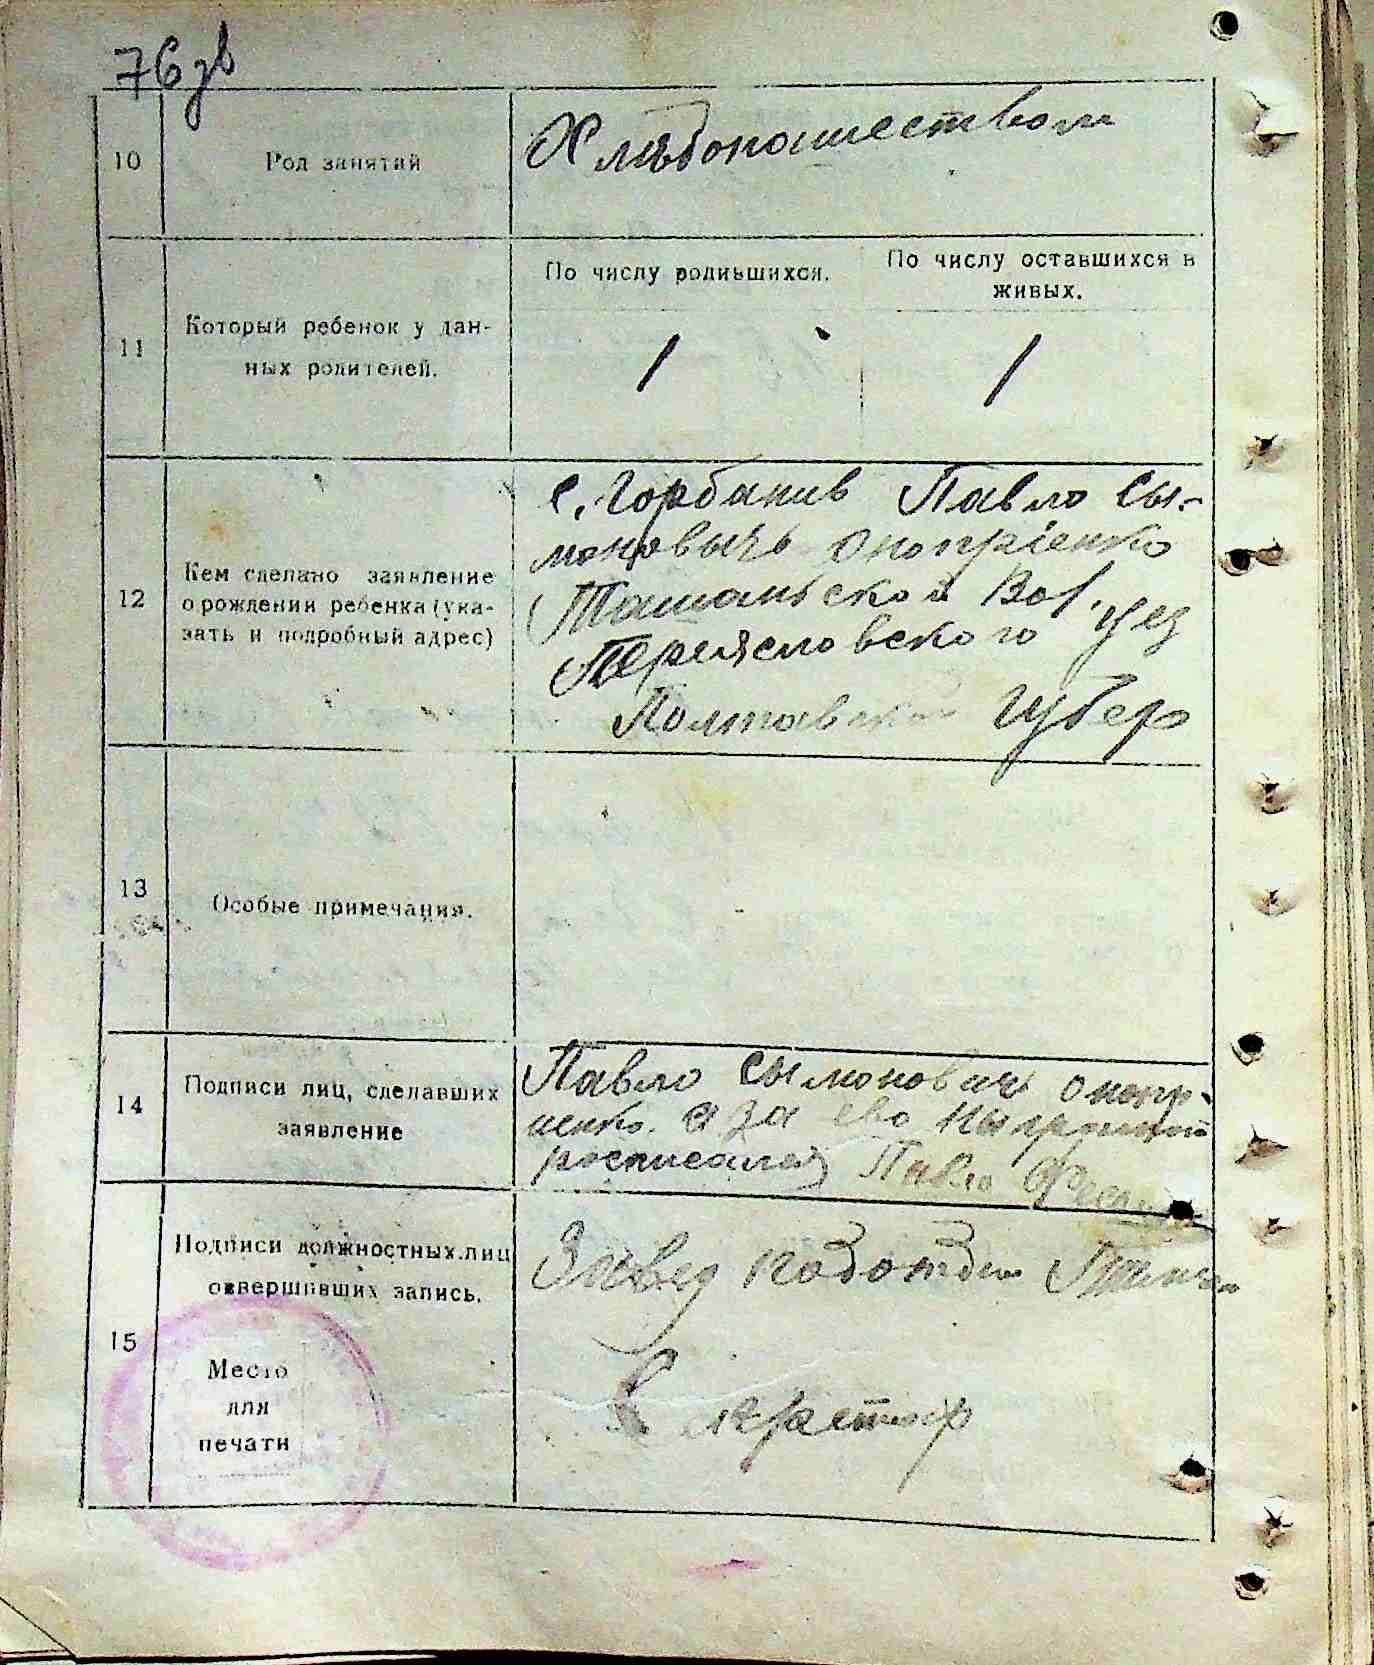 76 зв
10
Род занятий
Хлѣбопашеством
11
Который ребенок у дан-
ных родителей.
По числу родившихся.
По числу оставшихся в
живых.
1
1
12
Кем сделано заявление
о рождении ребенка (ука-
зать и подробный адрес)
с. Горбанив Павло Сы-
моновычь Оноприенко
Ташанской Вол. уез
Переясловского
Полтавской Губер
13
Особые примечания.
14
Подписи лиц, сделавших
заявление
Павло Сымоновичь Онопр-
иенко. а за ево
росписался Павло
15
Подписи должностных лиц
совершивших запись.
Место
для
печати
Завед подотдел